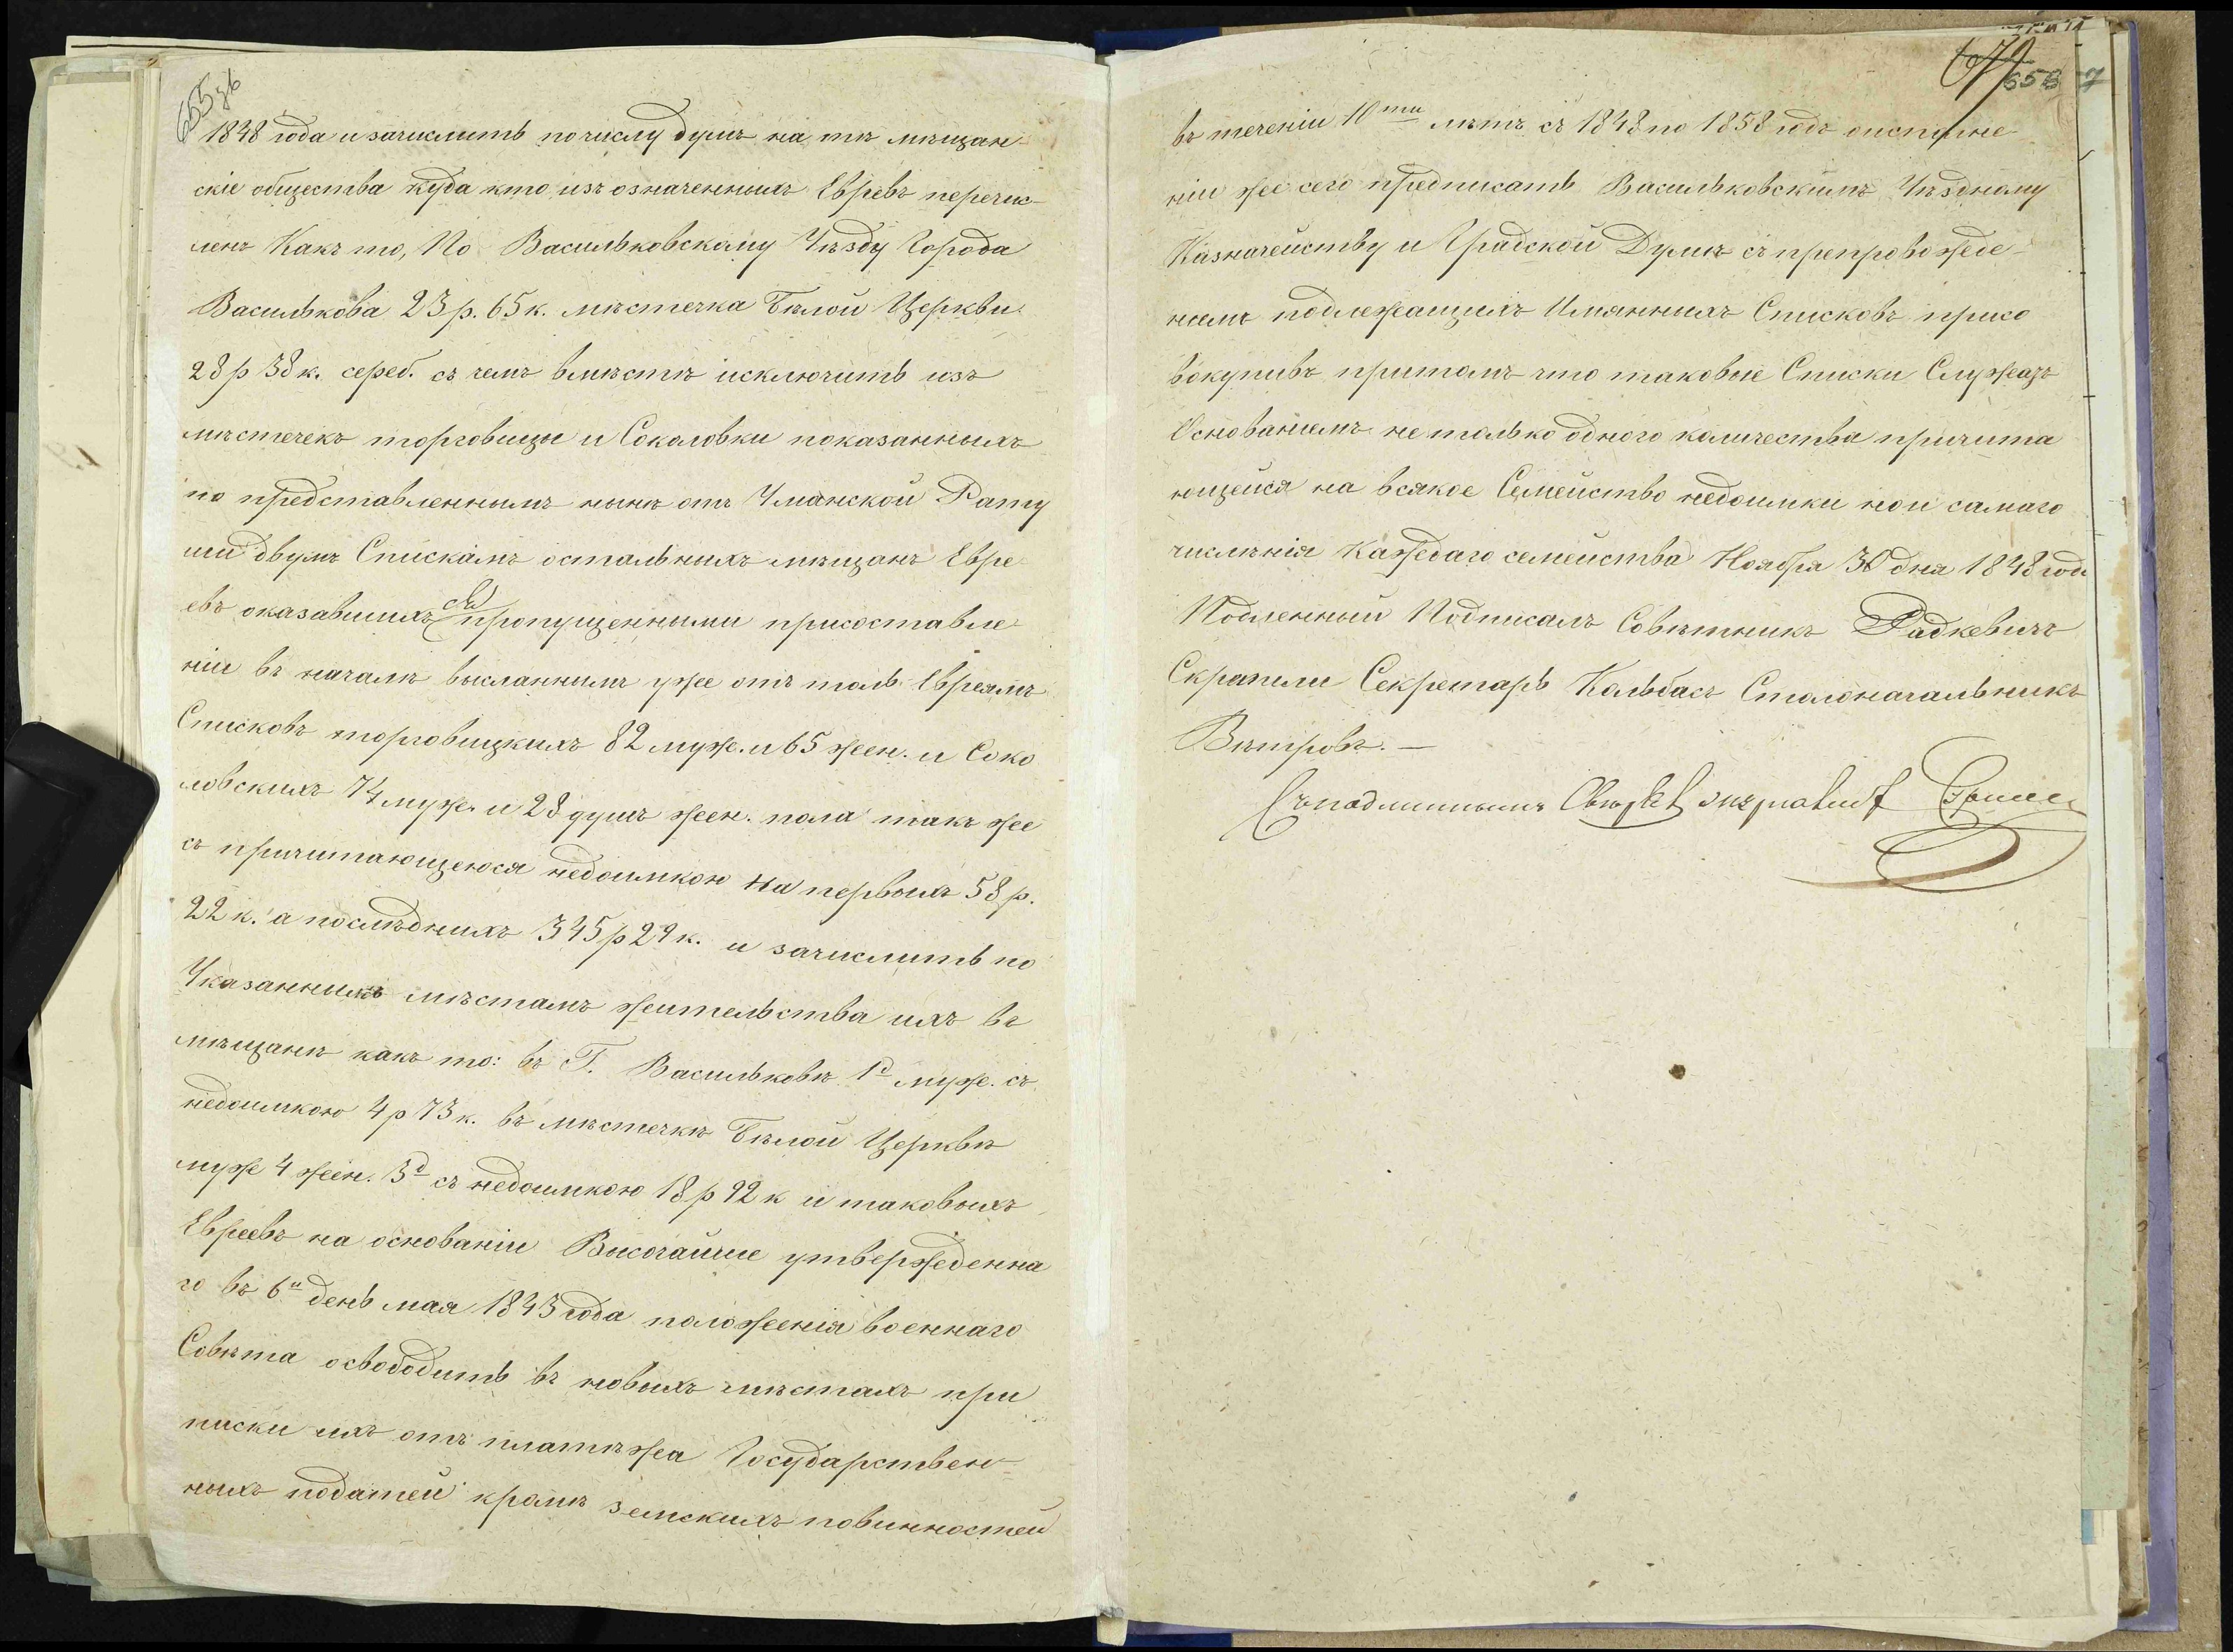 1848 года и зачислить по числу душъ на тѣ мѣщан-
скіе общества куда кто изъ означенныхъ Евревъ перечис-
ленъ Какъ то, По Васильковскому Уѣзду Города
Василькова 23 р. 65 к. мѣстечка Бѣлой Церкви
28 р 38 к. сереб. съ чемъ вмѣстѣ исключить изъ
мѣстечекъ торговицы и Соколовки показанныхъ
по представленнымъ нынѣ отъ Уманской Рату
ши двумъ Спискамъ остальныхъ мѣщанъ Евре
евъ оказавшихъ ся пропущенными присоставле
ніи въ началѣ высланнымъ уже отъ толь Евреямъ
Списковъ торговицкихъ 82 муж. и 65 жен. и Соко
ловскихъ 74 муж. и 28 душъ жен. пола также
съ причитающеюся недоимкою на первыхъ 58 р.
22 к. а послѣднихъ 345 р 29 к. и зачислить по
Указаннымъ мѣстамъ жительства ихъ въ
мѣщане какъ то: въ Г. Васильковѣ 1д муж. съ
недоимкою 4 р 73 к. въ мѣстечкѣ Бѣлой Церквѣ
муж 4 жен. 3д съ недоимкою 18 р 92 к и таковыхъ
Евреевъ на основаніи Высочайше утвержденна
го въ 6й день мая 1843 года положенія военнаго
Совѣта освободить въ новыхъ мѣстахъ при
писки ихъ отъ платѣжа Государствен-
ныхъ податей кромѣ земскихъ повинностей
въ теченіи 10ти лѣтъ съ 1848 по 1858 годъ оисполне
ніи же сего предписать Васильковскимъ Уѣздному
Казначейству и Градской Думѣ съ препровожде-
ніемъ подлежащихъ Имянныхъ Списковъ присо
вокупивъ притомъ что таковые Списки Служатъ
Основаніемъ не только одного количества причита
ющейся на всякое Семейство недоимки но и самаго
числѣнія каждаго семейства Ноября 30 дня 1848 года
Подленный Подписалъ Совѣтникъ Радкевичъ
Скрепили Секретарь Кольбасъ Столоначальникъ
Вѣтровъ. —
Съ подлиннымъ